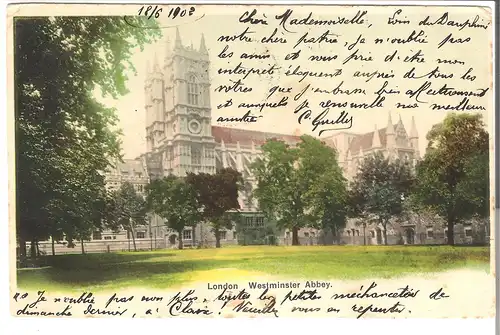 18/6 1902
Chère Mademoiselle, Loin du Dauphiné
notre chère patrie, je n'oublie pas
les amis et vous prie d'être mon
interprèt éloquent auprès de tous les
vôtres que j'embrasse bien affectueusement
et auxquels je renouvelle mon meilleur
amitié
London Westminster Abbey.
Je n'oublie pas non plus, toutes les petites méchancetés de
dimanche dernier, à Claix! Veuillez vous en repentir.